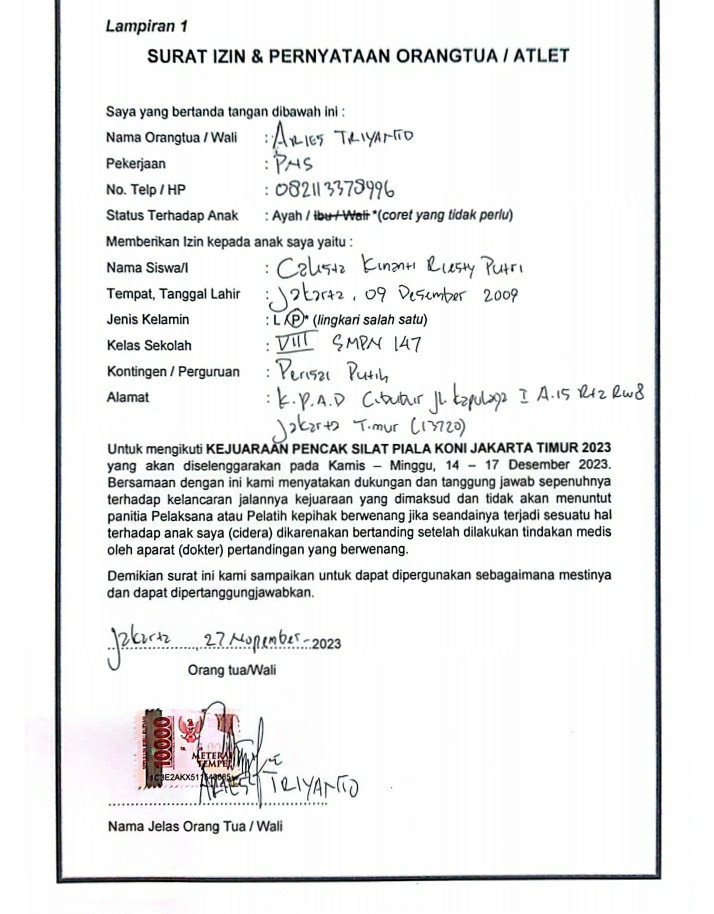 Lampiran 1
SURAT IZIN & PERNYATAAN ORANGTUA / ATLET
Saya yang bertanda tangan dibawah ini :
Nama Orangtua / Wali : ARIES TRIYANTO
Pekerjaan : PNS
No. Telp / HP : 082113378996
Status Terhadap Anak : Ayah / Ibu / Wali *(coret yang tidak perlu)
Memberikan Izin kepada anak saya yaitu :
Nama Siswa/I : Calista Kinanti Riesty Putri
Tempat, Tanggal Lahir : Jakarta, 09 Desember 2009
Jenis Kelamin : L / P* (lingkari salah satu)
Kelas Sekolah : VIII SMPN 147
Kontingen / Perguruan : Perisai Putih
Alamat : K.P.A.D Cibubur jl. Kapulaga I A.15 Rt2 Rw8
Jakarta Timur (13720)
Untuk mengikuti KEJUARAAN PENCAK SILAT PIALA KONI JAKARTA TIMUR 2023
yang akan diselenggarakan pada Kamis – Minggu, 14 – 17 Desember 2023.
Bersamaan dengan ini kami menyatakan dukungan dan tanggung jawab sepenuhnya
terhadap kelancaran jalannya kejuaraan yang dimaksud dan tidak akan menuntut
panitia Pelaksana atau Pelatih kepihak berwenang jika seandainya terjadi sesuatu hal
terhadap anak saya (cidera) dikarenakan bertanding setelah dilakukan tindakan medis
oleh aparat (dokter) pertandingan yang berwenang.
Demikian surat ini kami sampaikan untuk dapat dipergunakan sebagaimana mestinya
dan dapat dipertanggungjawabkan.
Jakarta, 27 Nopember-2023
Orang tua/Wali
10000
METERAI
TEMPEL
ARIES TRIYANTO
Nama Jelas Orang Tua / Wali